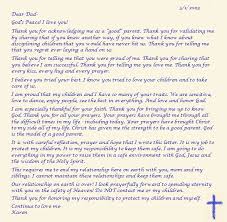 2/1/2002
Dear Dad-
God's Peace! I love you!
Thank you for acknowledging me as a "good" parent. Thank you for validating me
by sharing that if you knew another way, if you knew what I know about
disciplining children that you would have never hit us. Thank you for telling me
that you regret ever laying a hand on us.
Thank you for telling me that you were proud of me. Thank you for sharing that
you believe I am successful. Thank you for telling me you love me every time with
every kiss, every hug and every prayer.
I believe you tried your best. I know you tried to love your children and to take
care of us.
I am proud that my children and I have so many of your traits. We are sensitive,
love to dance, enjoy people, see the best in everything. And love and honor God.
I am especially thankful for your faith. Thank you for bringing me up to know
God. Thank you for all your prayers. Your prayers have brought me through all
the difficult times in my life - including today. Your prayers have brought Christ
to my side all of my life. Christ has given me the strength to be a good parent. God
is the model of a good parent.
It is with careful reflection, prayer and hope that I write this letter. It is my job to
protect my children. It is my responsibility to keep them safe. I am going to do
everything in my power to raise them in a safe environment with God, Jesus and
the wisdom of the Holy Spirit.
This requires me to end my relationship here on earth with you, mom and my
siblings. I cannot maintain these relationships and keep them safe.
Our relationship on earth is over! I look prayerfully forward to spending eternity
with you in the safety of Heaven! Do NOT contact me or my children.
Thank you for honoring my responsibility to protect my children and myself.
Continue to love me
Karen